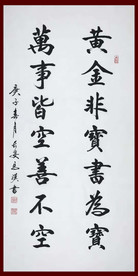 黃金非寶書為寶
萬事皆空善不空
庚子春月書